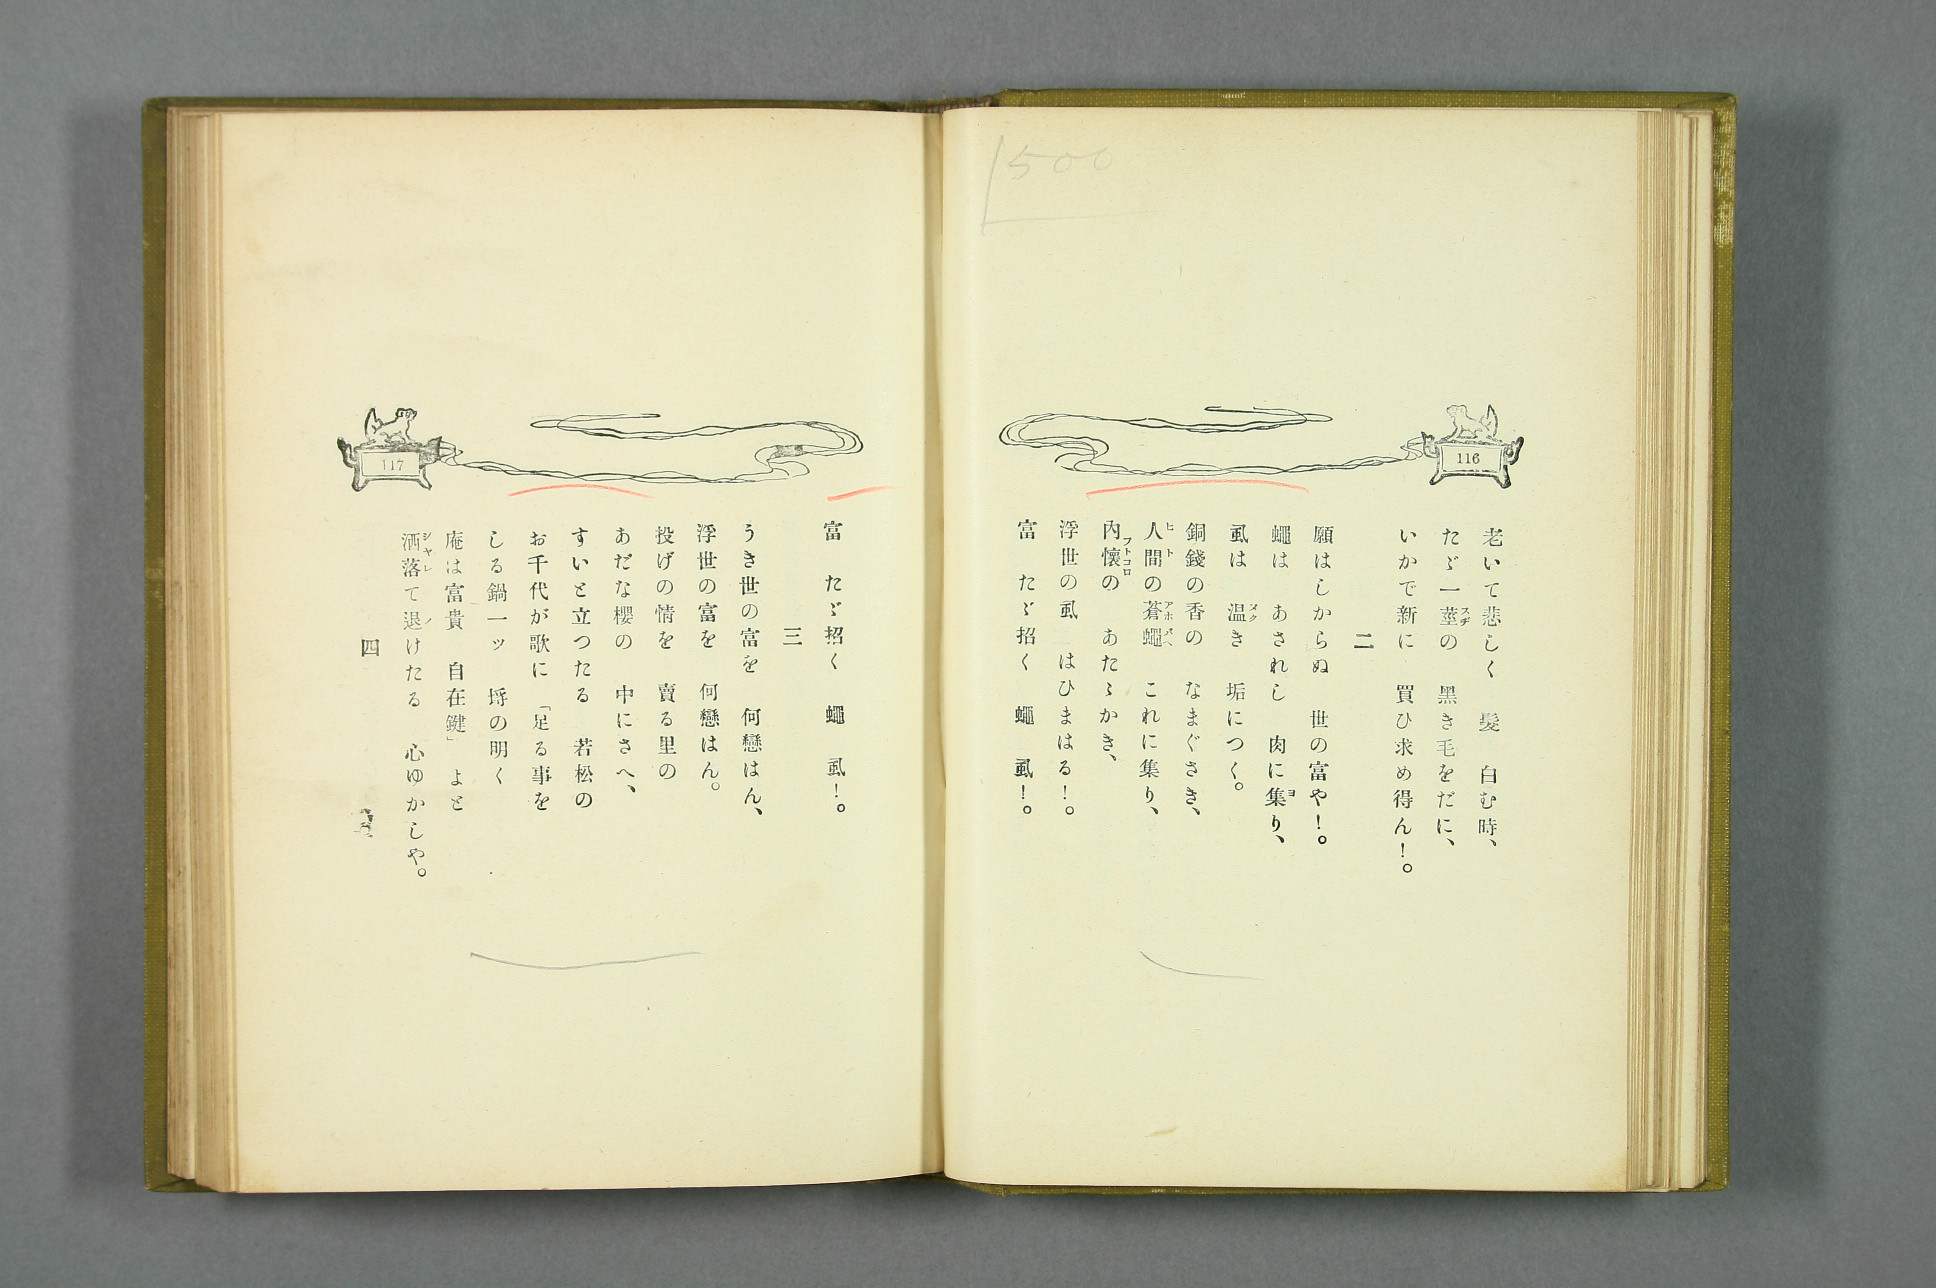 1500
116
老いて悲しく　髮　白む時、
たゞ一莖の　黑き毛をだに、
いかで新に　買ひ求め得ん！。
二
願はしからぬ　世の富や！。
蠅は　あされし　肉に集り、
虱は　温き　垢につく。
銅錢の香の　なまぐさき、
人間の蒼蠅　これに集り、
內懷の　あたゝかき、
浮世の虱　はひまはる！。
富　たゞ招く　蠅　虱！。
117
富　たゞ招く　蠅　虱！。
三
うき世の富を　何戀はん、
浮世の富を　何戀はん。
投げの情を　賣る里の
あだな櫻の　中にさへ、
すいと立つたる　若松の
お千代が歌に「足る事を
しる鍋一ッ　埒の明く
庵は富貴　自在鍵」　よと
洒落て退けたる　心ゆかしや。
四